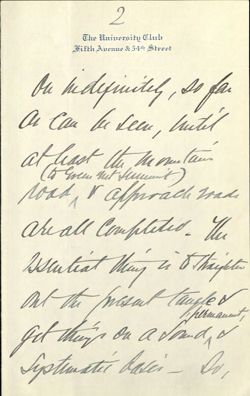 2
The University Club
Fifth Avenue & 54th Street
on indefinitely, so far
as can be seen, until
at least the mountain
(to Green Mt Summit)
road, & approach roads
are all completed - The
essential thing is to straighten
out the present tangle &
permanent,
get things on a sound, &
systematic basis - So,